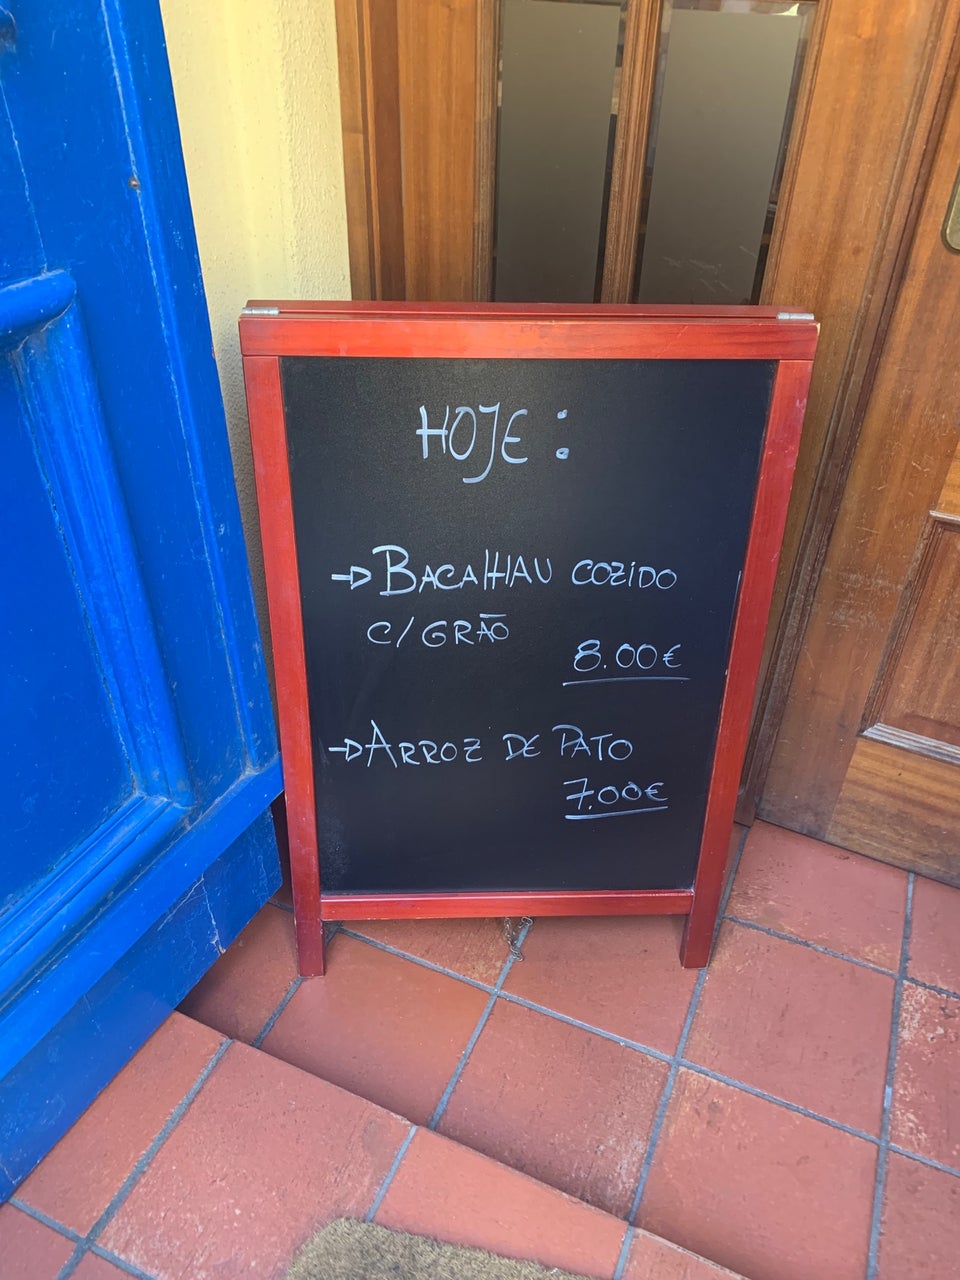 HOJE :
→ BACALHAU COZIDO
C/ GRÃO
8.00€
→ ARROZ DE PATO
7.00€